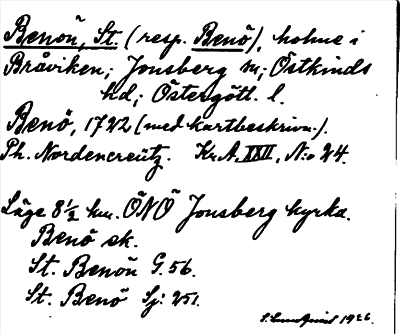 Benön, St. (resp. Benö), holme i
Bråviken; Jonsberg sn; Östkinds
hd; Östergötl. l.
Benö, 1722 (med kartbeskrivn.).
Ph. Nordencreütz. Kr.A. XXII, N:o 24.
Läge 8½ km. ÖNÖ Jonsberg kyrka.
Benö ek.
St. Benön G. 56.
St. Benö Sj: 251.
1926.